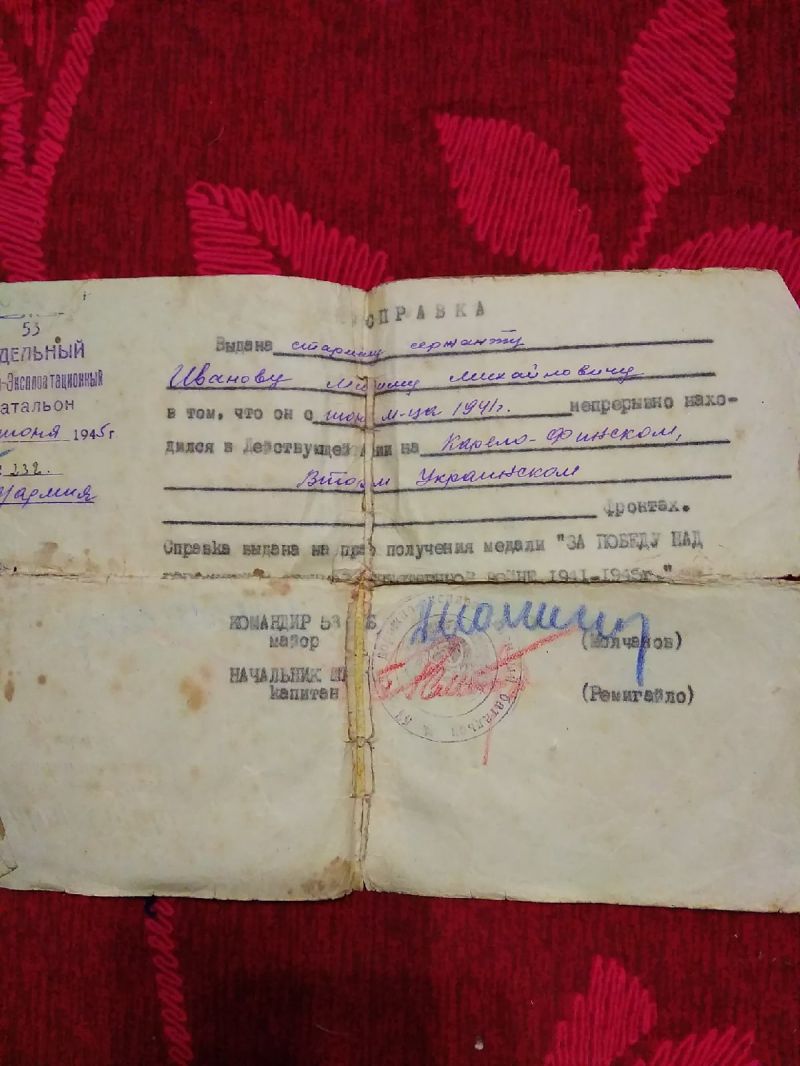 53
ДЕЛЬНЫЙ
-Эксплоатационный
атальон
июня 1945 г
232.
армия
СПРАВКА
Выдана старшему сержанту
Иванову Михайловичу
в том, что он с июня м-ца 1941 г. непрерывно нахо-
дился в Действующей на Карело-Финском,
Втором Украинском
фронтах.
Справка выдана на получения медали "ЗА ПОБЕДУ НАД
ВОЙНЕ 1941-1945г."
КОМАНДИР 53
майор (Молчанов)
НАЧАЛЬНИК
капитан (Ремигайло)